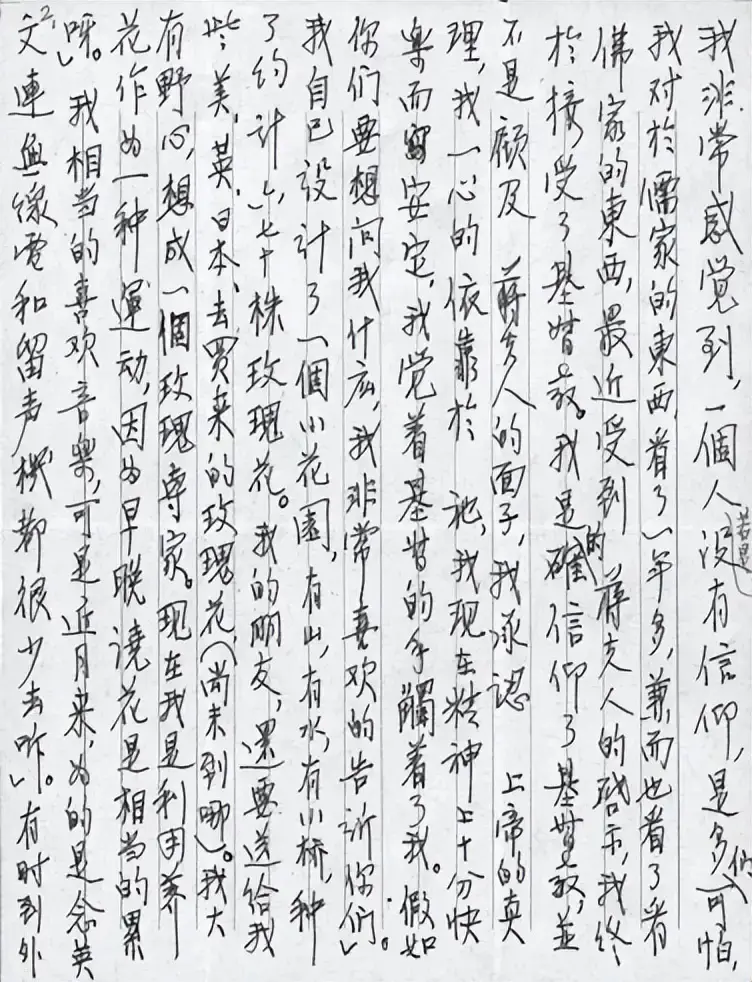 我非常感觉到,一個人若是没有信仰,是多们可怕,
我对於儒家的東西,看了一年多,兼而也看了看
佛家的東西,最近受到蔣夫人的启示,我终
於接受了基督教。我是的確信仰了基督教,並
不是 顧及 蔣夫人的面子,我承認 上帝的真
理,我一心的依靠於 祂,我現在精神上十分快
樂而安定,我觉着基督的手觸着了我。假如
你们要想问我什么,我非常喜欢的告诉你们。
我自己設计了一個小花園,有山,有水,有小橋,种
了约计六七十株玫瑰花。我的朋友,還要送給我
些、美、英、日本、去買来的玫瑰花(尚未到哪)。我大
有野心,想成一個玫瑰専家。现在我是利用养
花作为一种運动,因为早晚澆花是相当的累
呀。我相当的喜欢音樂,可是近月来,为的是念英
文,連無線電和留声機都很少去听。有时到外